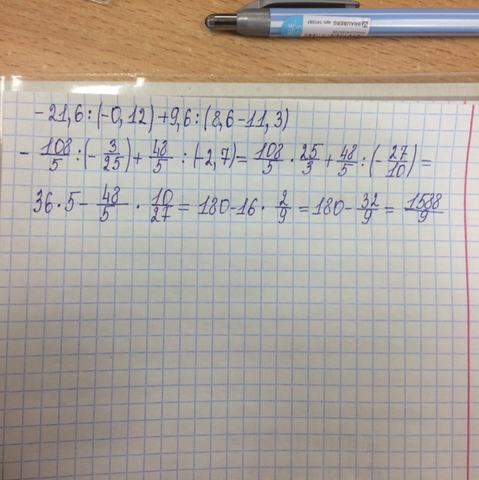 BRAUBERG
-21,6:(-0,12)+9,6:(8,6-11,3)
-108/5:(-3/25)+48/5:(-2,7)=108/5·25/3+48/5:(-27/10)=
36·5-48/5·10/27=180-16·2/9=180-32/9=1588/9